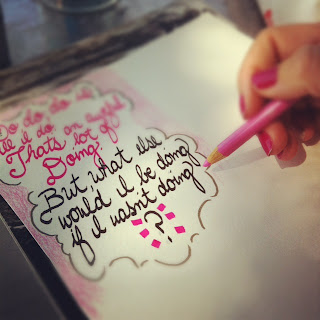 Do do do
all I do
That's an awful
lot of
Doing.
But what else
would I be doing
if I wasn't doing
?